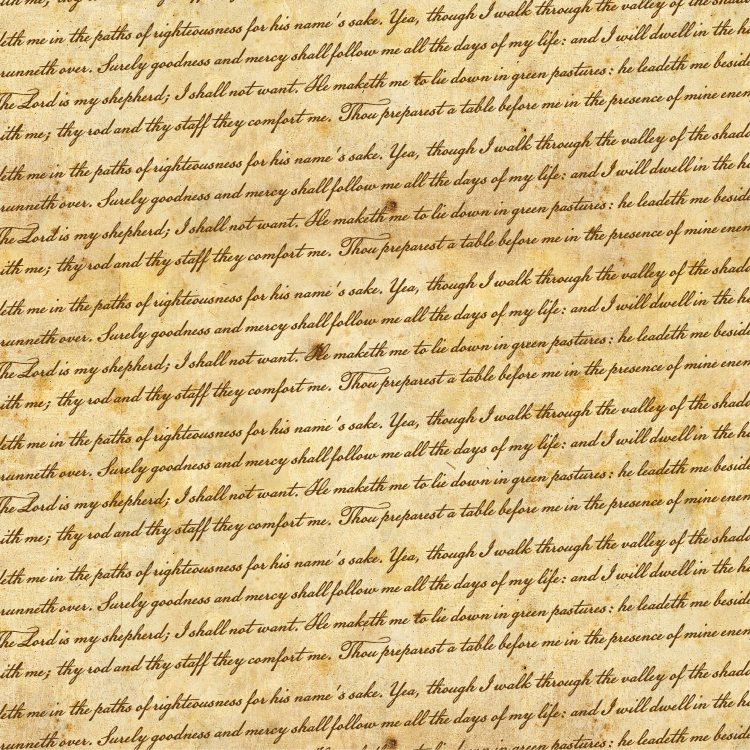 ith me; thy
leth me in the paths of righteousness for his name's sake. Yea, though I walk through the valley of the
runneth over. Surely goodness and mercy shall follow me all the days of my life: and I will dwell in the h
he Lord is my shepherd; I shall not want. He maketh me to lie down in green pastures: he leadeth me beside
ith me; thy rod and thy staff they comfort me. Thou preparest a table before me in the presence of mine enem
leth me in the paths of righteousness for his name's sake. Yea, though I walk through the valley of the shado
runneth over. Surely goodness and mercy shall follow me all the days of my life: and I will dwell in the h
he Lord is my shepherd; I shall not want. He maketh me to lie down in green pastures: he leadeth me beside
ith me; thy rod and thy staff they comfort me. Thou preparest a table before me in the presence of mine enem
leth me in the paths of righteousness for his name's sake. Yea, though I walk through the valley of the shado
runneth over. Surely goodness and mercy shall follow me all the days of my life: and I will dwell in the h
he Lord is my shepherd; I shall not want. He maketh me to lie down in green pastures: he leadeth me beside
ith me; thy rod and thy staff they comfort me. Thou preparest a table before me in the presence of mine enem
leth me in the paths of righteousness for his name's sake. Yea, though I walk through the valley of the shado
runneth over. Surely goodness and mercy shall follow me all the days of my life: and I will dwell in the h
he Lord is my shepherd; I shall not want. He maketh me to lie down in green pastures: he leadeth me beside
ith me; thy rod and thy staff they comfort me. Thou preparest a table before me in the presence of mine enem
leth me in the paths of righteousness for his name's sake. Yea, though I walk through the valley of the shado
runneth over. Surely goodness and mercy shall follow me all the days of my life: and I will dwell in the h
he Lord is my shepherd; I shall not want. He maketh me to lie down in green pastures: he leadeth me beside
ith me; thy rod and thy staff they comfort me. Thou preparest a table before me in the presence of mine enem
leth me in the paths of righteousness for his name's sake. Yea, though I walk through the valley of the shado
runneth over. Surely goodness and mercy shall follow me all the days of my life: and I will dwell in the h
in green pastures: he leadeth me beside